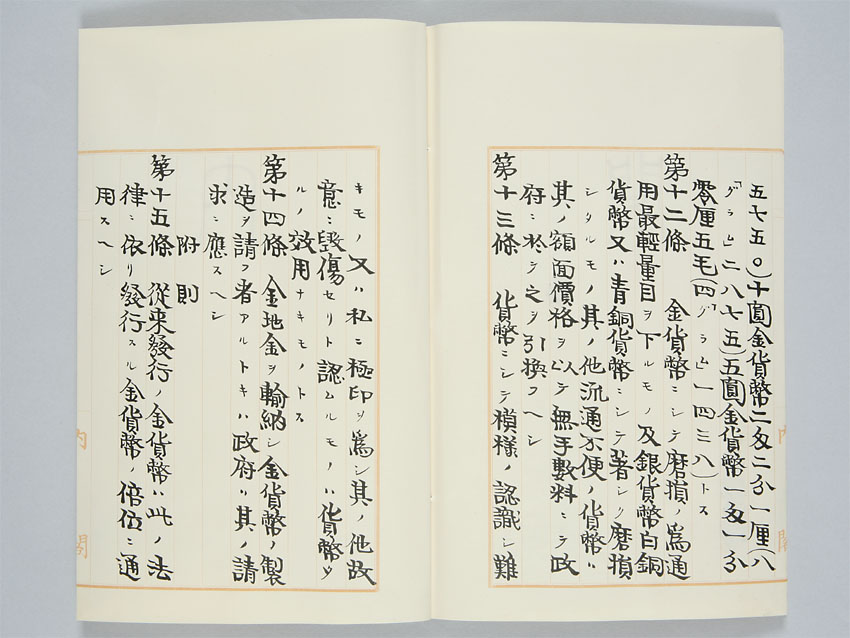 五七五〇)十圓金貨幣二匁二分一厘(八
「グラム」二八七五)五圓金貨幣一匁一分
零厘五毛(四「グラム」一四三八)トス
第十二條 金貨幣ニシテ磨損ノ為通
用最輕量目ヲ下ルモノ及銀貨幣白銅
貨幣又ハ青銅貨幣ニシテ著シク磨損
シタルモノ其ノ他流通不便ノ貨幣ハ
其ノ額面價格ヲ以テ無手數料ニテ政
府ニ於テ之ヲ引換フヘシ
第十三條 貨幣ニシテ模樣ノ認識シ難
キモノ又ハ私ニ極印ヲ為シ其ノ他故
意ニ毀傷セリト認ムルモノハ貨幣タ
ルノ效用ナキモノトス
第十四條 金地金ヲ輸納シ金貨幣ノ製
造ヲ請フ者アルトキハ政府ハ其ノ請
求ニ應スヘシ
附則
第十五條 從来發行ノ金貨幣ハ此ノ法
律ニ依リ發行スル金貨幣ノ倍位ニ通
用スヘシ
内閣